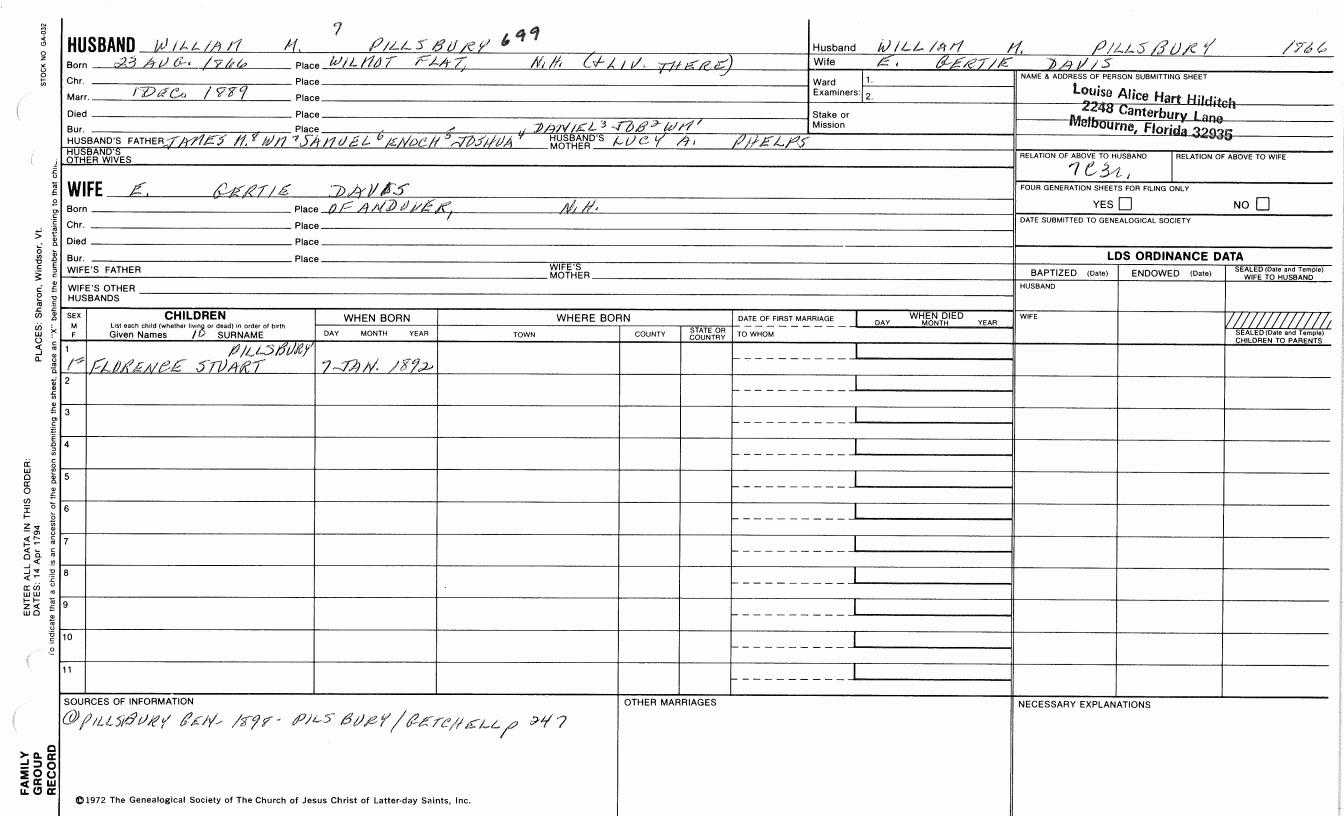 STOCK NO GA-032
9
HUSBAND WILLIAM M. PILLSBURY 699
Born 23 AUG. 1866 Place WILMOT FLAT, N.H. (+ LIV. THERE)
Chr. Place
Marr. 1 DEC. 1889 Place
Died Place
Bur. Place DANIEL³ JOB² WM¹
HUSBAND'S FATHER JAMES M.⁸ WM⁷ SAMUEL⁶ ENOCH⁵ JOSHUA⁴ HUSBAND'S MOTHER LUCY A. PHELPS
HUSBAND'S OTHER WIVES
WIFE E. GERTIE DAVIS
Born Place OF ANDOVER, N.H.
Chr. Place
Died Place
Bur. Place
WIFE'S FATHER WIFE'S MOTHER
WIFE'S OTHER HUSBANDS
Husband WILLIAM M. PILLSBURY 1866
Wife E. GERTIE DAVIS
Ward Examiners: 1. 2.
Stake or Mission
NAME & ADDRESS OF PERSON SUBMITTING SHEET
Louise Alice Hart Hilditch
2248 Canterbury Lane
Melbourne, Florida 32935
RELATION OF ABOVE TO HUSBAND RELATION OF ABOVE TO WIFE
7C3r,
FOUR GENERATION SHEETS FOR FILING ONLY
YES NO
DATE SUBMITTED TO GENEALOGICAL SOCIETY
LDS ORDINANCE DATA
BAPTIZED (Date) ENDOWED (Date) SEALED (Date and Temple) WIFE TO HUSBAND
HUSBAND
WIFE
SEALED (Date and Temple) CHILDREN TO PARENTS
SEX M F
CHILDREN
List each child (whether living or dead) in order of birth
Given Names 10 SURNAME
WHEN BORN
DAY MONTH YEAR
WHERE BORN
TOWN COUNTY STATE OR COUNTRY
DATE OF FIRST MARRIAGE
TO WHOM
WHEN DIED
DAY MONTH YEAR
1 PILLSBURY
FLORENCE STUART 7 JAN. 1892
2
3
4
5
6
7
8
9
10
11
SOURCES OF INFORMATION
@ PILLSBURY GEN- 1898- PILSBURY/GETCHELL p 247
OTHER MARRIAGES
NECESSARY EXPLANATIONS
©1972 The Genealogical Society of The Church of Jesus Christ of Latter-day Saints, Inc.
ENTER ALL DATA IN THIS ORDER:
DATES: 14 Apr 1794
PLACES: Sharon, Windsor, Vt.
To indicate that a child is an ancestor of the person submitting the sheet, place an "X" behind the number pertaining to that chil
FAMILY
GROUP
RECORD